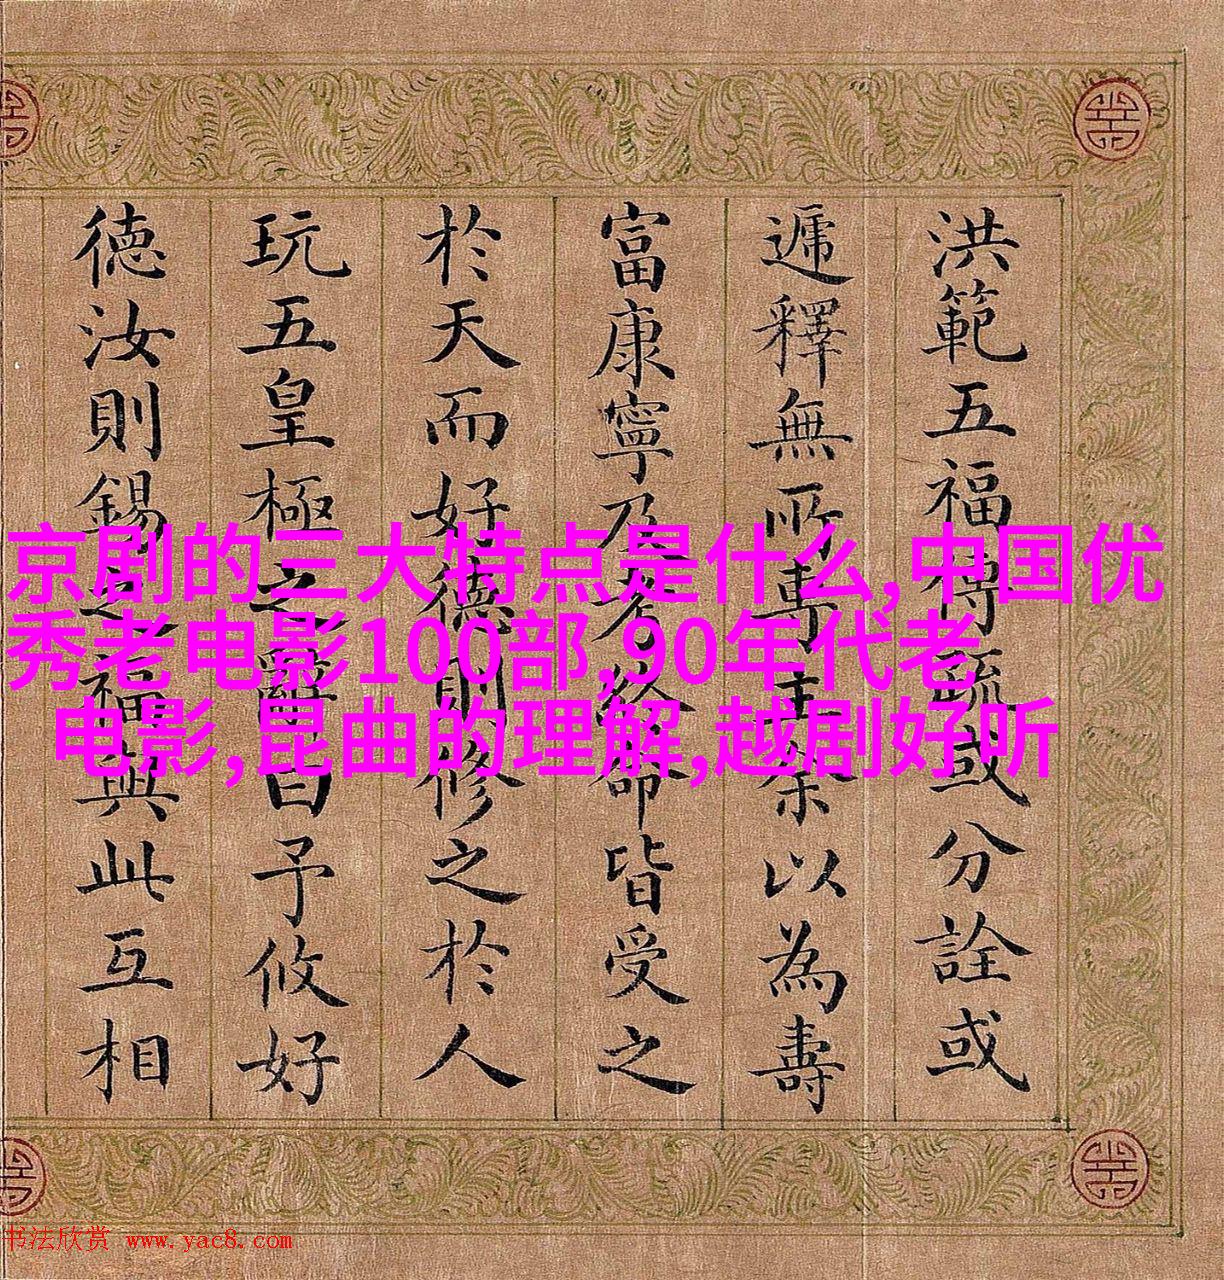 洪範五福傳疏或分詮或
遞釋無所專主余以為壽
富康寧乃考終命皆受之
於天而好德則修之於人
玩五皇極之辭曰予攸好
德汝則錫之福與此互相
京剧的三大特点是什么,中国优
秀老电影100部,90年代老
电影,昆曲的理解,越剧好听
书法欣赏 www.yac8.com